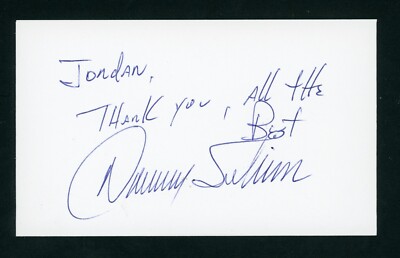 Jordan,
Thank you, All the
Best
Danny Sullivan